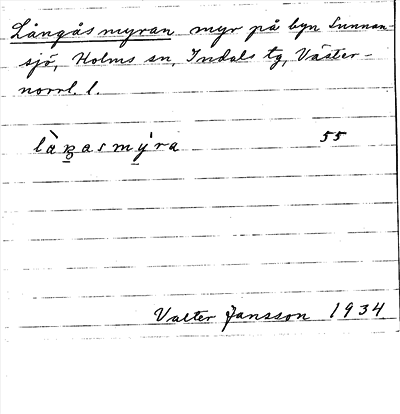 Långåsmyran myr på byn Sunnan-
sjö, Holms sn, Indals tg, Väster-
norrl. l.
làꞥasmýra 55
Valter Jansson 1934